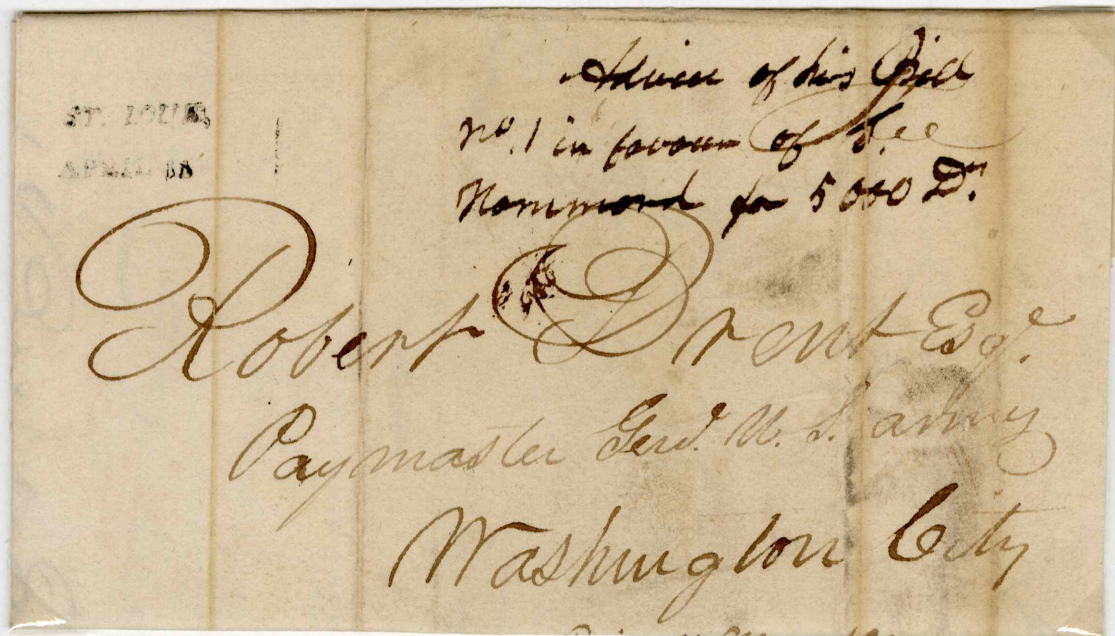 ST. LOUIS,
APRIL 18
Advice of his Bill
No. 1 in favour of S.
Hammond for 5000 Drs.
Robert Brent Esqr.
Paymaster Genl. U. S. army
Washington City